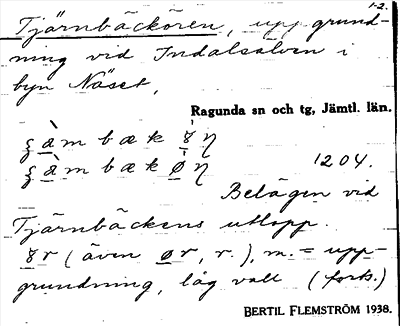 1-2.
Tjärnbäckören, uppgrund-
ning vid Indalsälven i
byn Näset,
Ragunda sn och tg, Jämtl. län.
1204.
Belägen vid
Tjärnbäckens utlopp.
(även ør, r.), m. = upp-
grundning, låg vall (forts.)
BERTIL FLEMSTRÖM 1938.